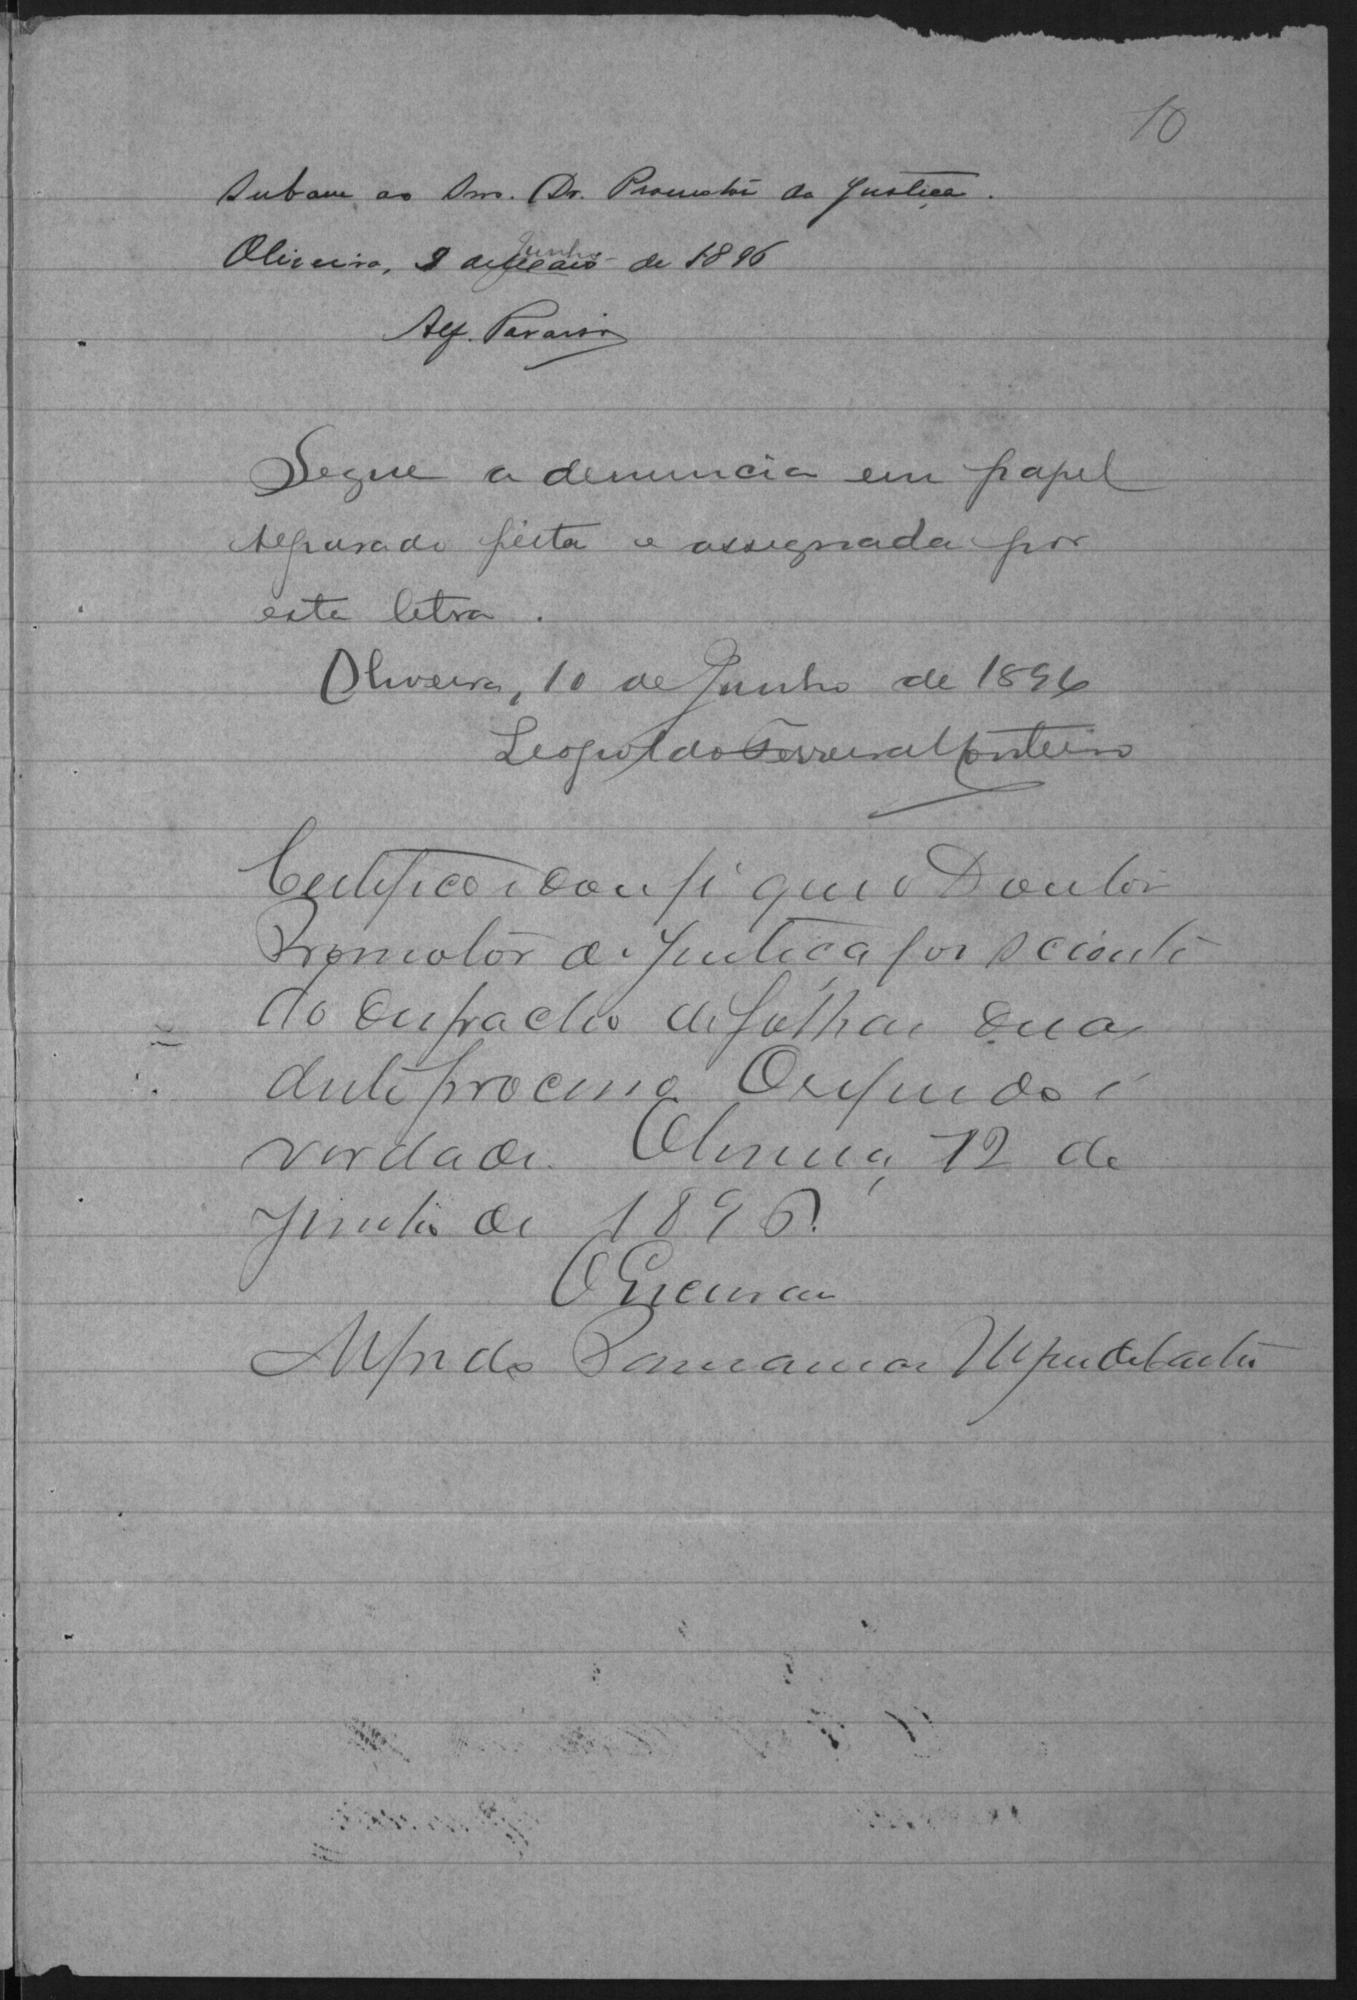 10
Subam ao Snr. Dr. Promotor da Justiça.
Oliveira, 9 de Junho de 1896
Alf. Paraiso
Segue a denuncia em papel
separado feita e assignada por
esta letra.
Oliveira, 10 de Junho de 1896
Leopoldo Ferreira Monteiro
Certifico e dou fé que o Doutor
Promotor de Justiça foi sciente
do despacho de folhas
O referido é
verdade. Oliveira, 12 de
Junho de 1896.
O Escrivam
Alfredo